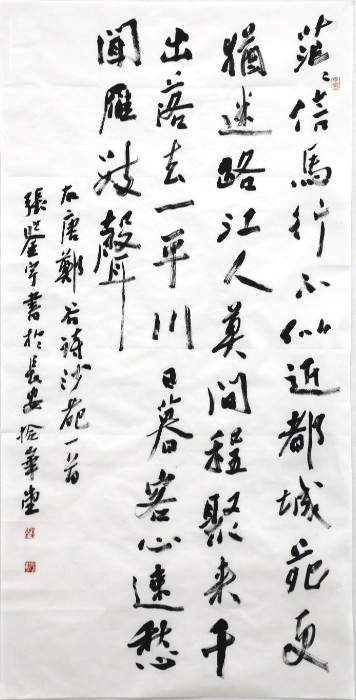 茫〻信馬行不似近都城苑吏
猶迷路江人莫問程聚来千
出落去一平川日暮客心速愁
聞雁数聲
右唐鄭谷詩沙苑一首
張鑒宇書於長安拾華堂